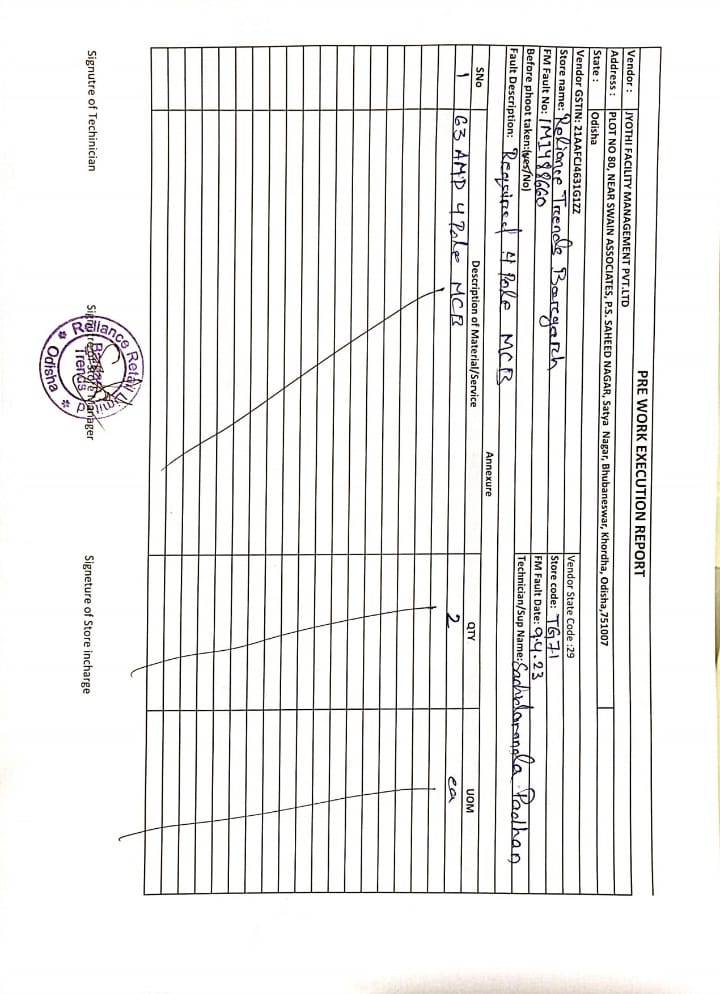 PRE WORK EXECUTION REPORT
Vendor : JYOTHI FACILITY MANAGEMENT PVT.LTD
Address : PLOT NO 80, NEAR SWAIN ASSOCIATES, P.S. SAHEED NAGAR, Satya Nagar, Bhubaneswar, Khordha, Odisha,751007
State : Odisha
Vendor GSTIN: 21AAFCJ4631G1ZZ Vendor State Code :29
Store name: Reliance Treends Baregarh Store code: TG71
FM Fault No: IM1498660 FM Fault Date: 9.4.23
Before phoot taken:(yes/No) Technician/Sup Name: Paolhan
Fault Description: Required 4 Pole MCB
Annexure
SNo Description of Material/Service QTY UOM
1 63 AMP 4 Pole MCB 2 ea
Signutre of Techinician Signutre of Store Manager Signeture of Store incharge
Reliance Retail
Trends
Odisha